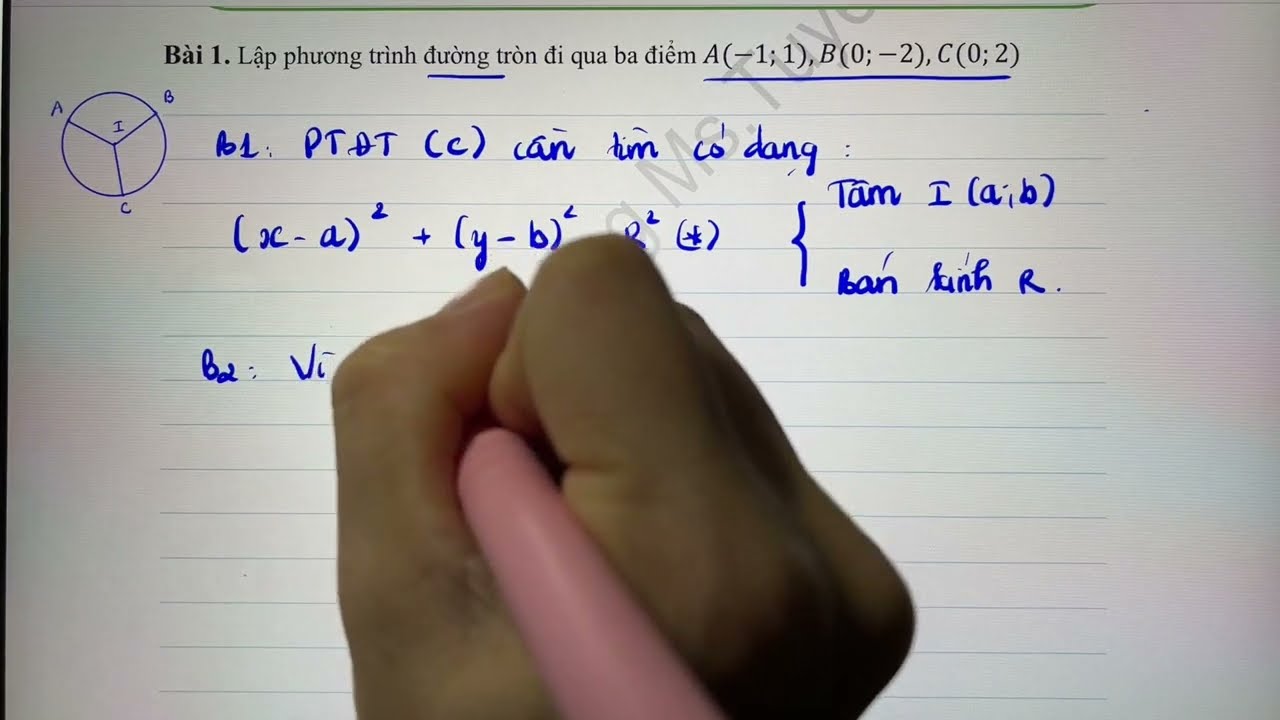 Bài 1. Lập phương trình đường tròn đi qua ba điểm A(−1; 1), B(0; −2), C(0; 2)
A
B
I
C
B1: PTĐT (C) cần tìm có dạng :
(x - a)² + (y - b)² R² (*)
Tâm I (a; b)
Bán kính R.
B2: Vì
g Ms. Tuye